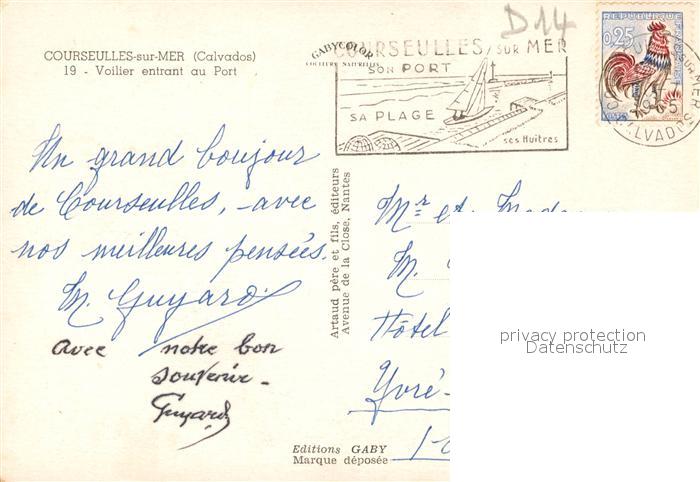 D14
COURSEULLES-sur-MER (Calvados)
19 - Voilier entrant au Port
GABYCOLOR
COULEURS NATURELLES
COURSEULLES/SUR MER
SON PORT
SA PLAGE
ses Huîtres
0,25
Un grand bonjour
de Courseulles, avec
nos meilleures pensées.
M. Guyard
avec notre bon
souvenir -
Guyard
Artaud père et fils, éditeurs
Avenue de la Close, Nantes
Mr et Madame
M.
Hôtel
Yvré-
privacy protection
Datenschutz
Editions GABY
Marque déposée